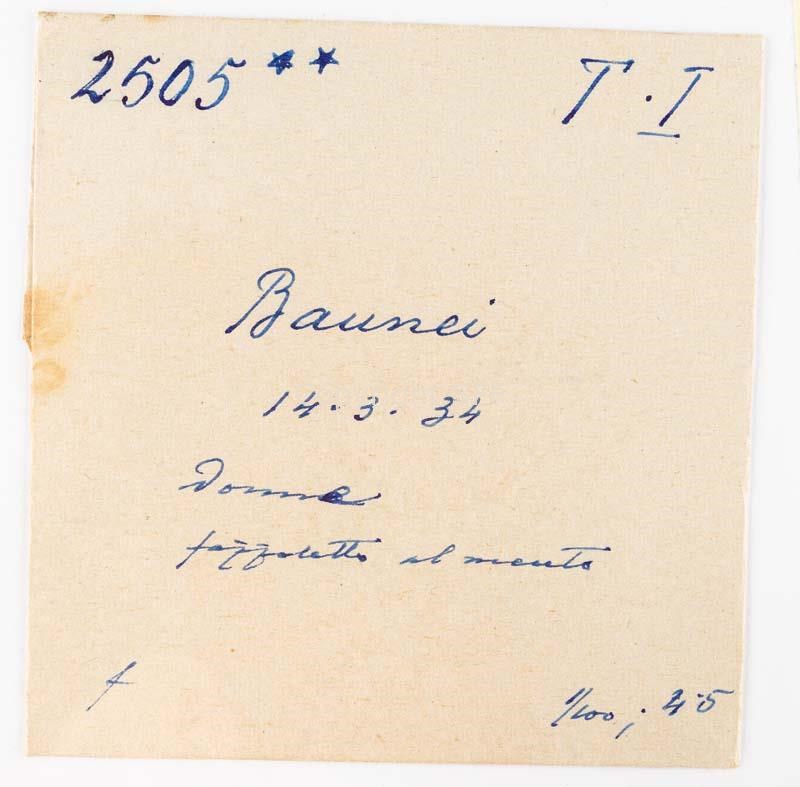 2505** T.I
Baunei
14.3.34
Donna
fazzoletto al mento
f
1/100; 4.5